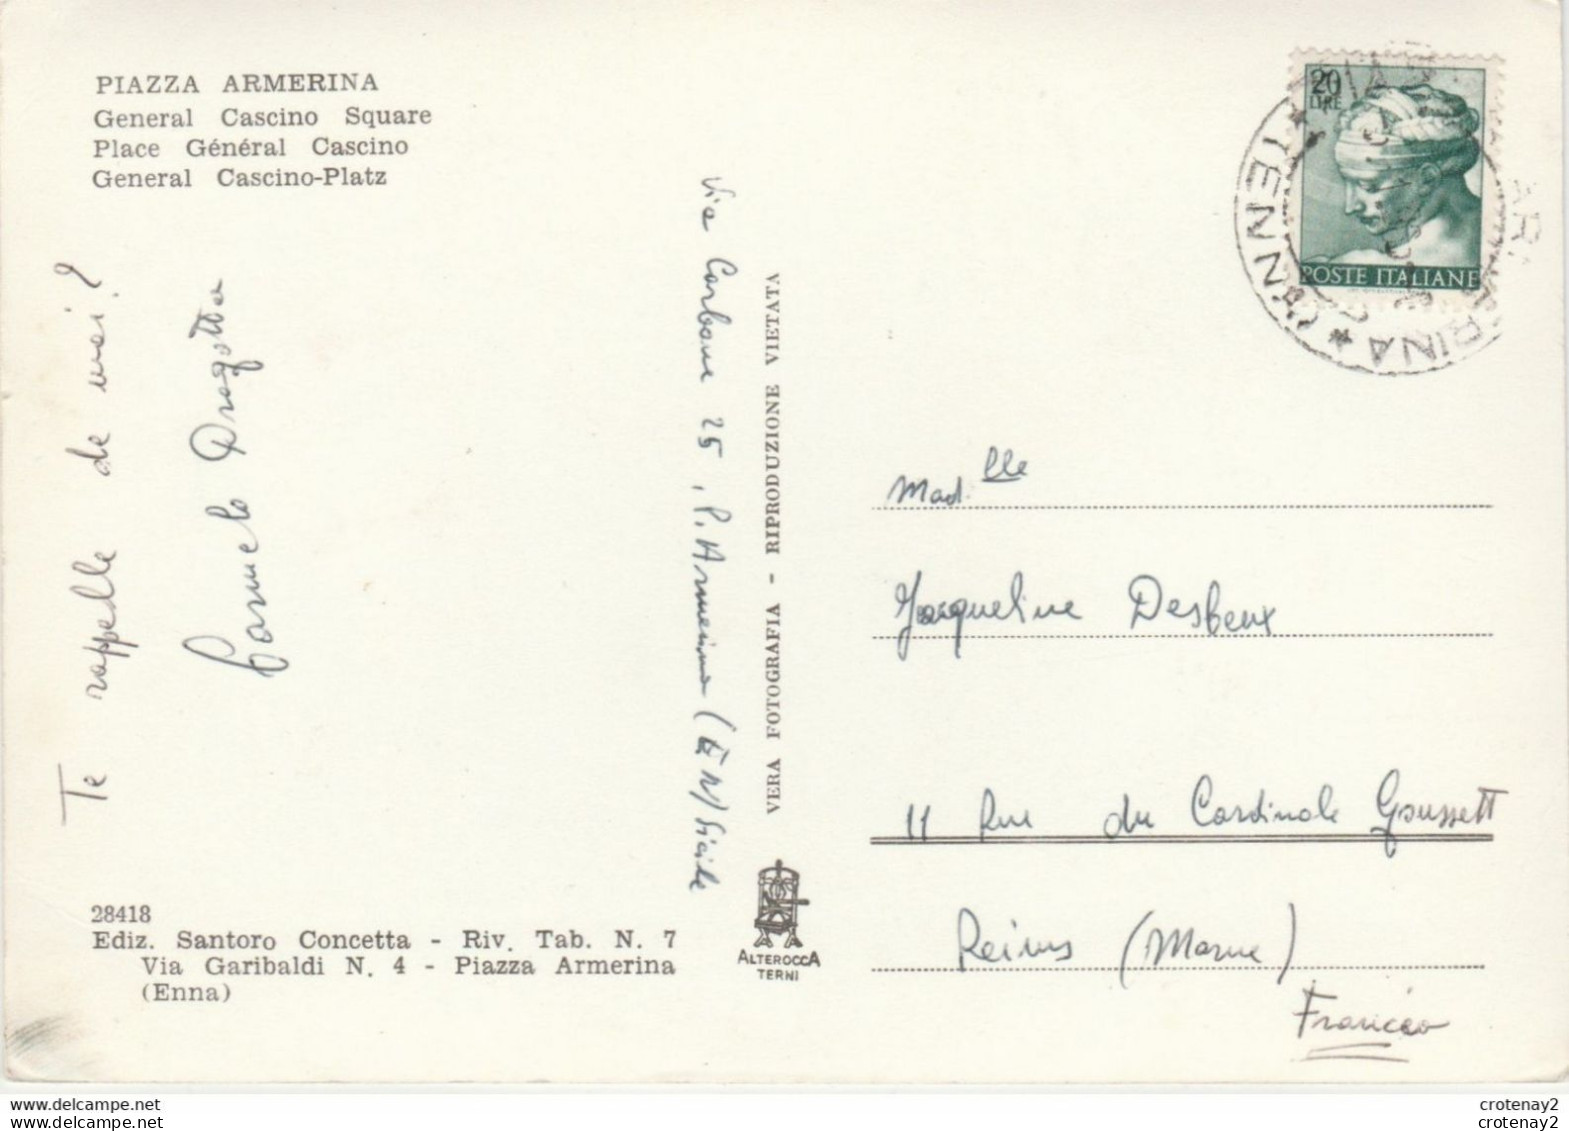 PIAZZA ARMERINA
General Cascino Square
Place Général Cascino
General Cascino-Platz
Te rappelle de moi?
Carmelo Dragotta
Via Carbone 25, P. Armerina (EN) Sicile
VERA FOTOGRAFIA - RIPRODUZIONE VIETATA
28418
Ediz. Santoro Concetta - Riv. Tab. N. 7
Via Garibaldi N. 4 - Piazza Armerina
(Enna)
ALTEROCCA
TERNI
20
LIRE
POSTE ITALIANE
Mad.lle
Jacqueline Desbeux
11 Rue du Cardinale Goussett
Reims (Marne)
France
crotenay2
crotenay2
crotenay2
crotenay2